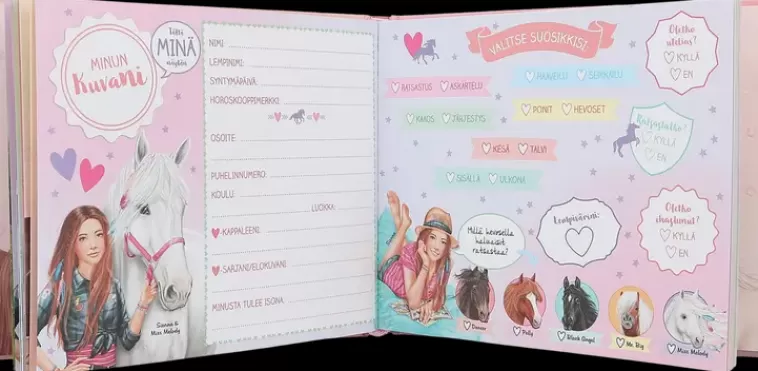 MINUN
Kuvani
Tältä
MINÄ
näytän
NIMI:
LEMPINIMI:
SYNTYMÄPÄIVÄ:
HOROSKOOPPIMERKKI:
OSOITE:
PUHELINNUMERO:
KOULU:
LUOKKA:
-KAPPALEENI:
-SARJANI/ELOKUVANI:
MINUSTA TULEE ISONA:
Sienna &
Miss Melody
VALITSE SUOSIKKISI:
RATSASTUS ASKARTELU
HAAVEILU SEIKKAILU
KAAOS JÄRJESTYS
PONIT HEVOSET
KESÄ TALVI
SISÄLLÄ ULKONA
Oletko
utelias?
KYLLÄ
EN
Ratsastatko?
KYLLÄ
EN
Oletko
ihastunut?
KYLLÄ
EN
Lempivärini:
Millä hevosella
haluaisit
ratsastaa?
Dancer
Polly
Black Angel
Mr. Big
Miss Melody